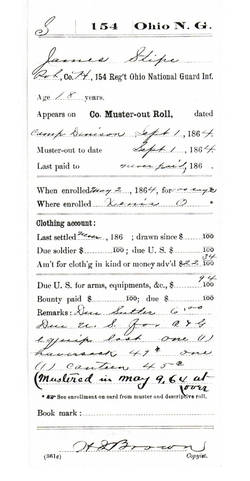 S 154 Ohio N. G.
James Stipe
Pvt, Co. H, 154 Reg't Ohio National Guard Inf.
Age 18 years.
Appears on Co. Muster-out Roll, dated
Camp Denison Sept 1, 1864
Muster-out to date Sept 1, 1864
Last paid to never paid, 186
When enrolled May 2, 1864, for 100 days
Where enrolled Xenia O
Clothing account:
Last settled Never, 186 ; drawn since $ 100
Due soldier $ 100; due U. S. $ 100
Am't for cloth'g in kind or money adv'd $ 22 34/100
Due U. S. for arms, equipments, &c., $ 94/100
Bounty paid $ 100; due $ 100
Remarks: Due Sutler 6.00
Due U. S. for
equip lost one (1)
haversack 49¢ one
(1) canteen 45¢
(Mustered in May 9, 64 at
over
* See enrollment on card from muster and descriptive roll.
Book mark:
Brown
(361c) Copyist.